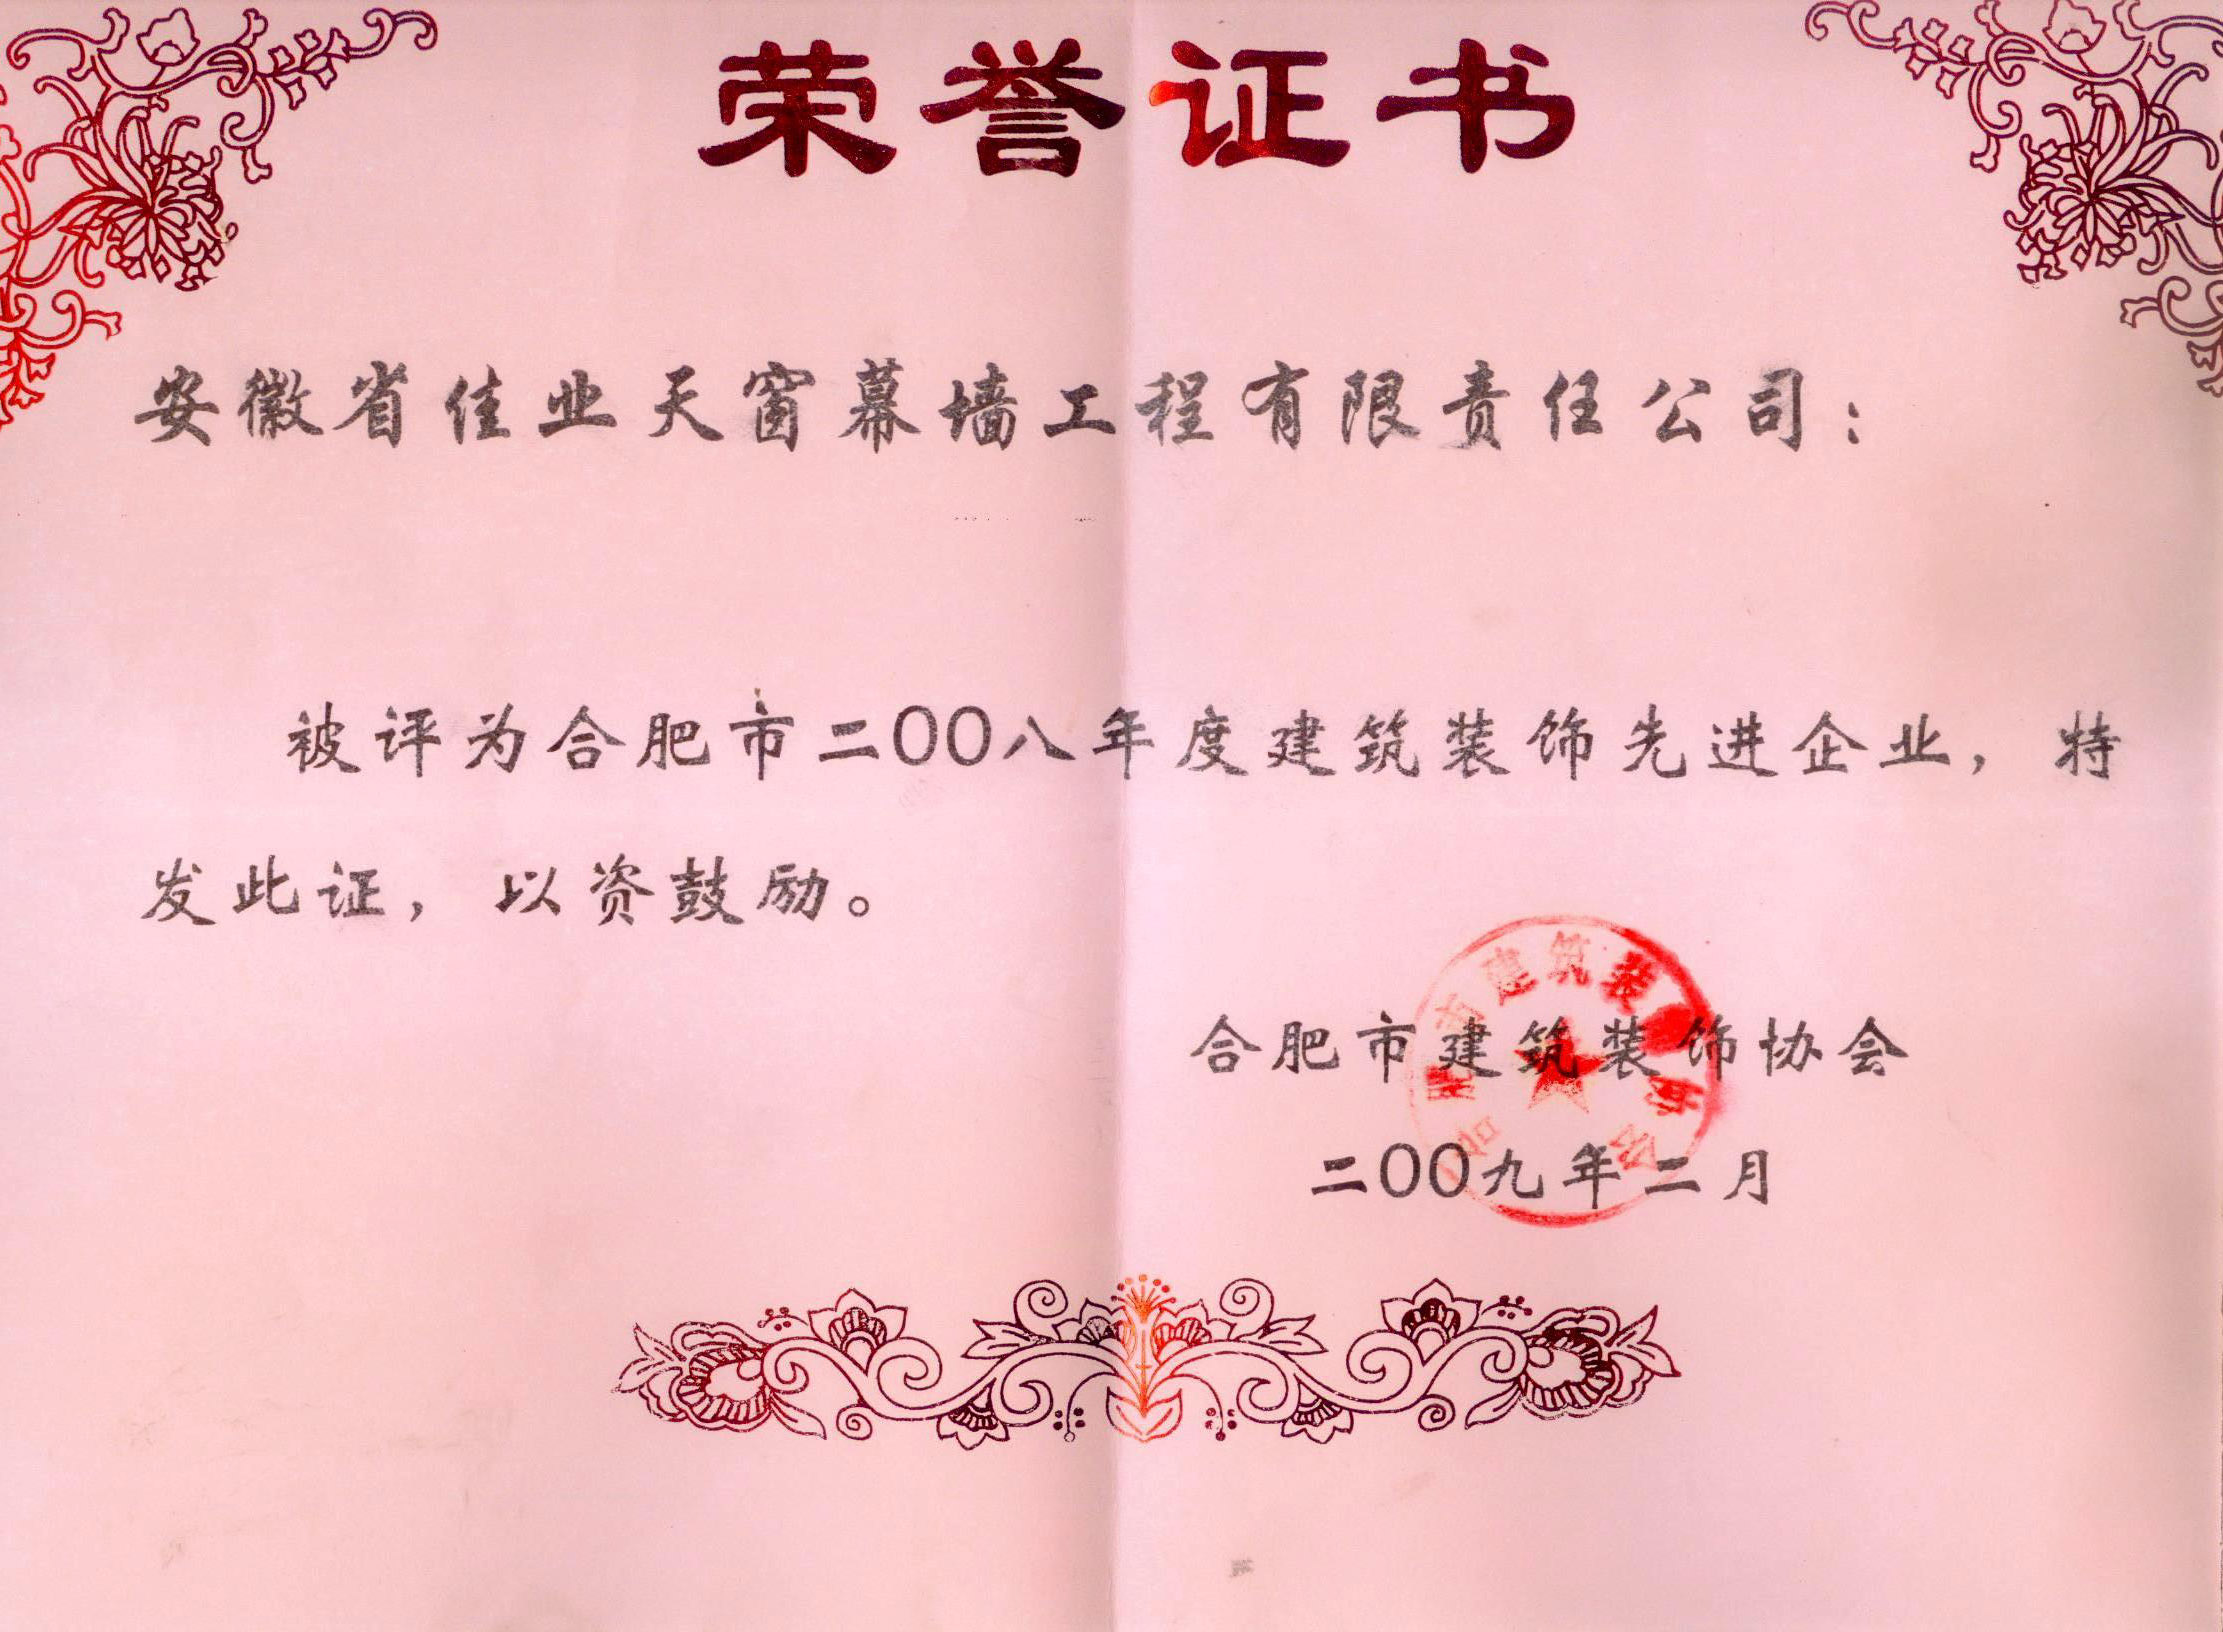 荣誉证书
安徽省佳业天窗幕墙工程有限责任公司：
被评为合肥市二00八年度建筑装饰先进企业，特
发此证，以资鼓励。
合肥市建筑装饰协会
二00九年二月